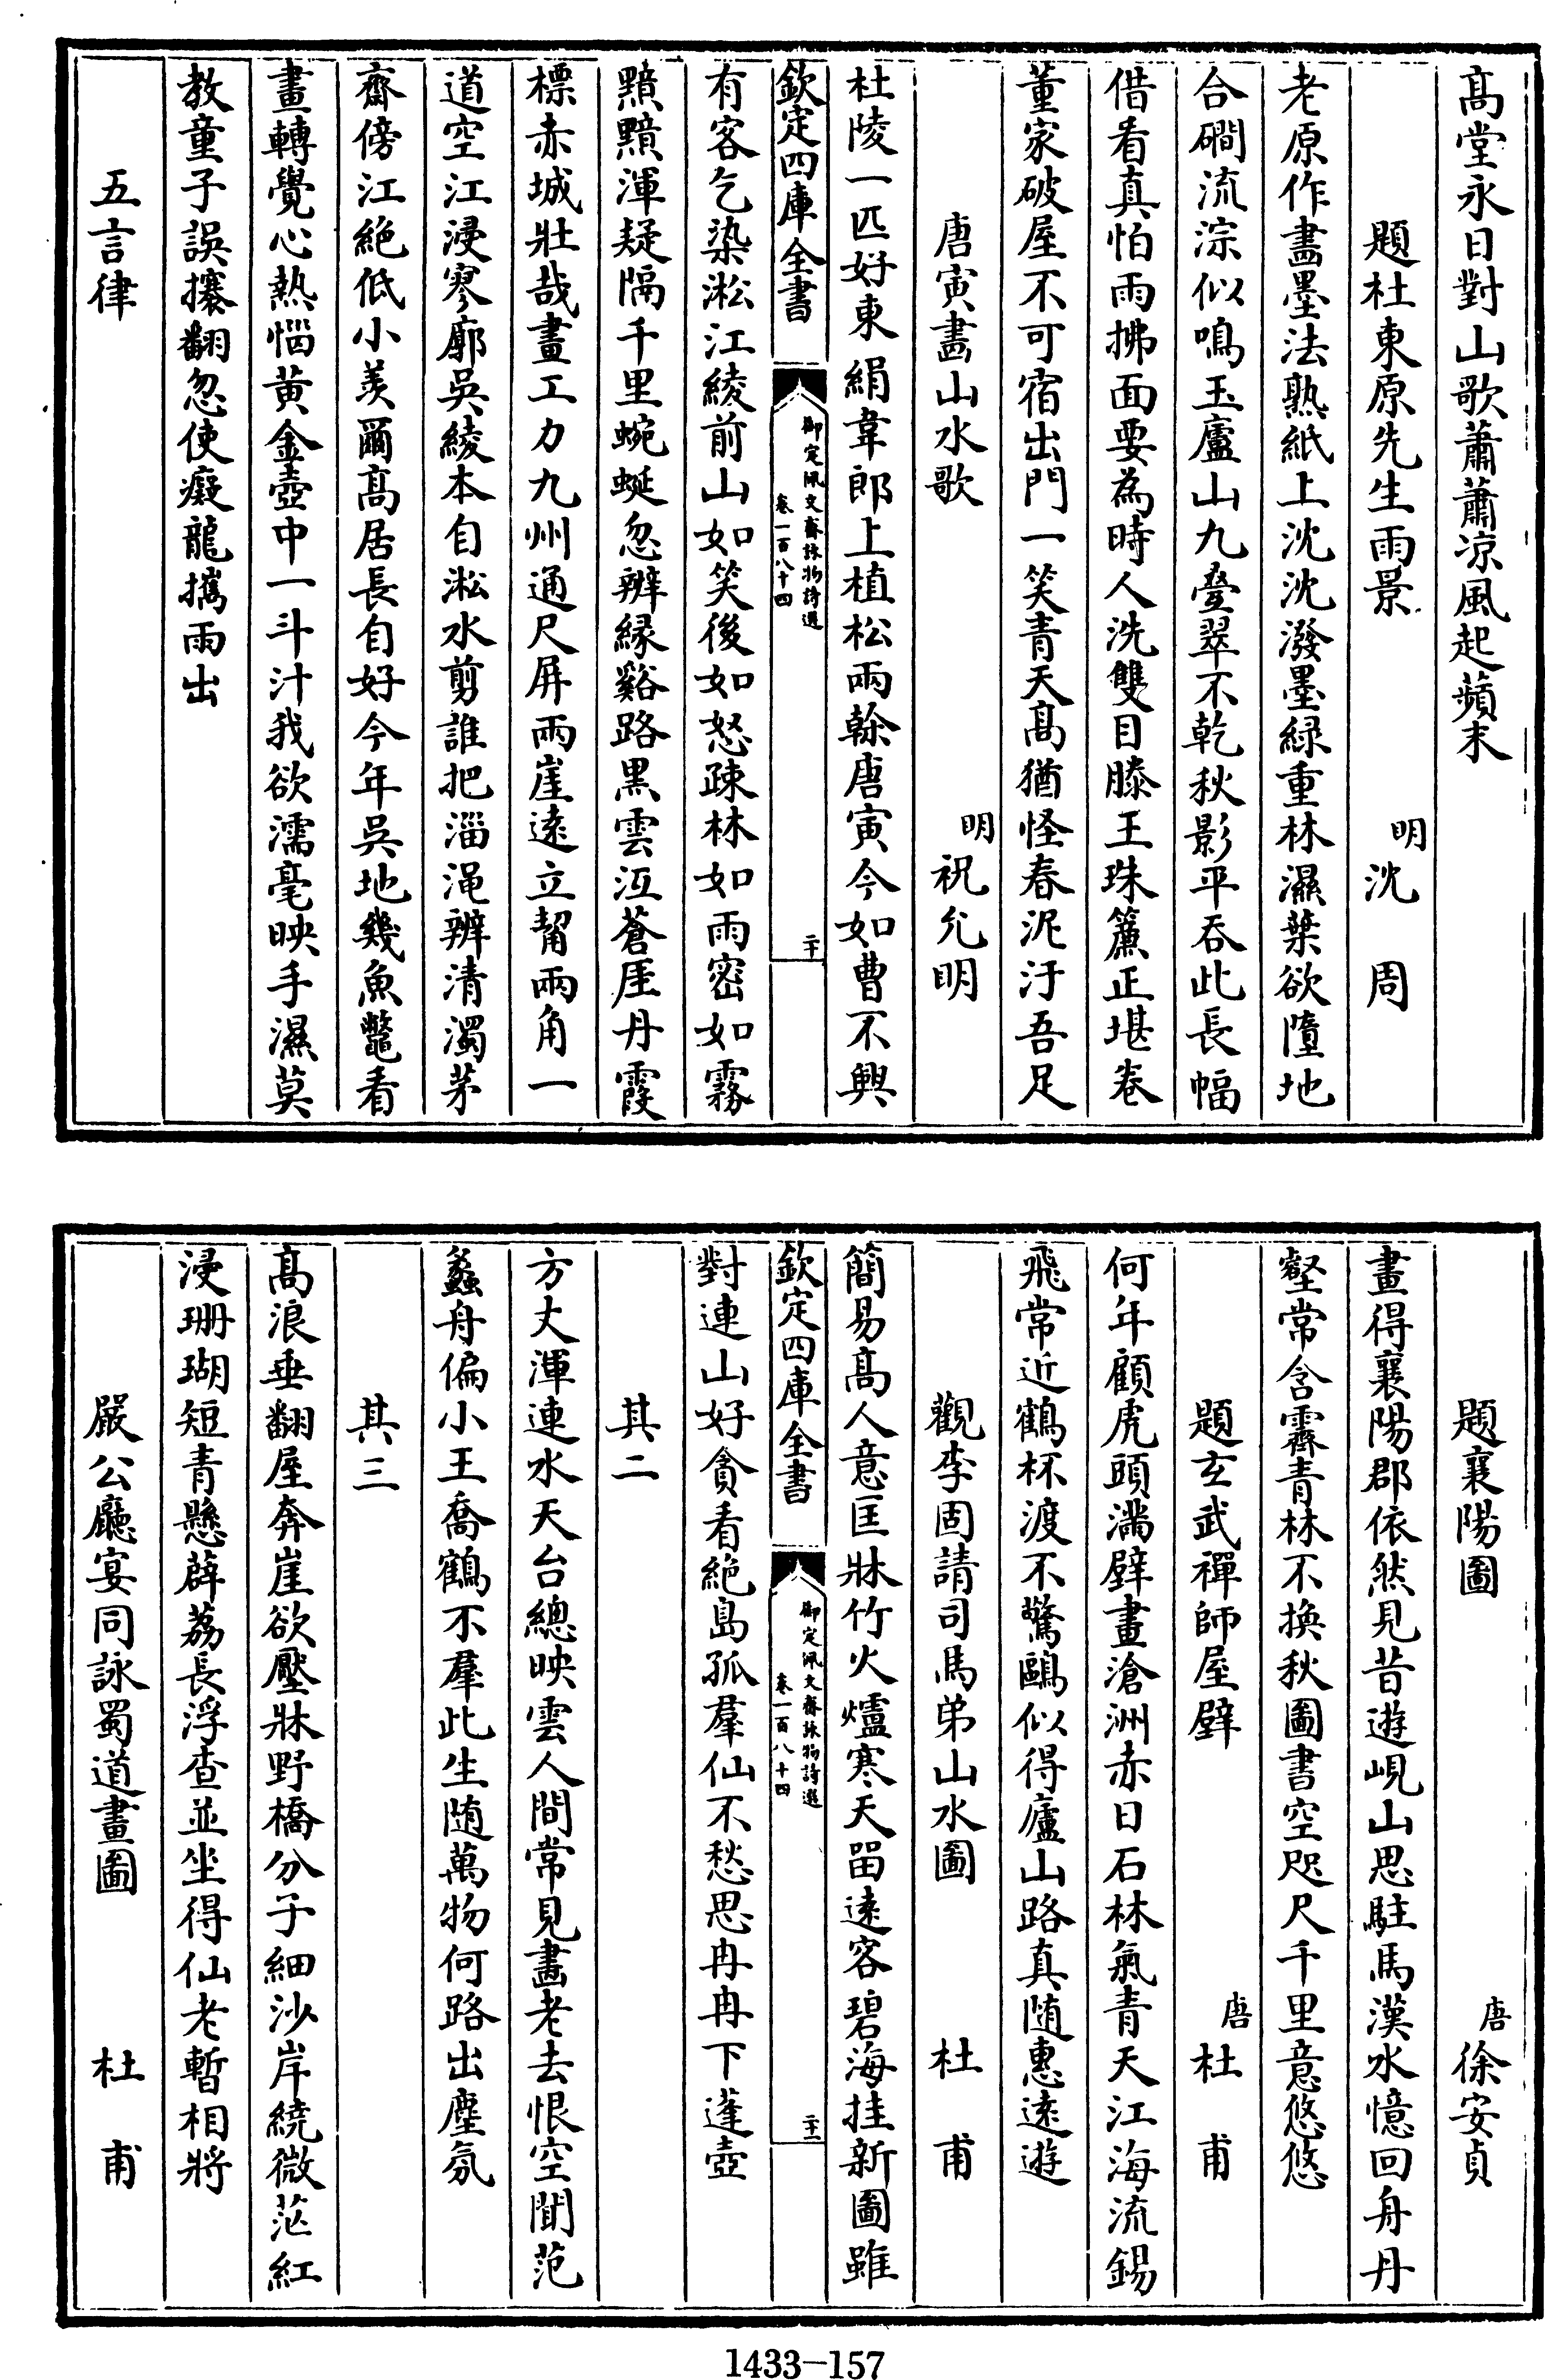 髙堂永日對山歌蕭蕭凉風起蘋末
題杜東原先生雨景　明沈周
老原作畵墨法熟紙上沈沈潑墨緑重林濕葉欲墮地
合磵流淙似鳴玉廬山九疊翠不乾秋影平吞此長幅
借看真怕雨拂面要為時人洗雙目滕王珠簾正堪卷
董家破屋不可宿出門一笑青天髙猶怪春泥汙吾足
唐寅畵山水歌　明祝允明
杜陵一匹好東絹韋郎上植松兩榦唐寅今如曹不興
欽定四庫全書　御定佩文齋詠物詩選　卷一百八十四　二十
有客乞染淞江綾前山如笑後如怒疎林如雨密如霧
黯黯渾疑隔千里蜿蜒忽辨縁谿路黒雲沍蒼厓丹霞
標赤城壯哉畫工力九州通尺屏兩崖逺立鬅兩角一
道空江浸寥廓吳綾本自淞水剪誰把淄渑辨清濁茅
齋傍江絶低小羡爾髙居長自好今年吳地幾魚鼈看
畫轉覺心熱惱黄金壺中一斗汁我欲濡毫映手濕莫
教童子誤攘翻忽使癡龍攜雨出
五言律
題襄陽圖　唐徐安貞
畫得襄陽郡依然見昔遊峴山思駐馬漢水憶回舟丹
壑常含霽青林不換秋圖書空咫尺千里意悠悠
題玄武禪師屋壁　唐杜甫
何年顧虎頭滿壁畫滄洲赤日石林氣青天江海流錫
飛常近鶴杯渡不驚鷗似得廬山路真随惠逺遊
觀李固請司馬弟山水圖　杜甫
簡易髙人意匡牀竹火爐寒天留逺客碧海挂新圖雖
欽定四庫全書　御定佩文齋詠物詩選　卷一百八十四　二十一
對連山好貪看絶島孤羣仙不愁思冉冉下蓬壺
其二
方丈渾連水天台總映雲人間常見畵老去恨空聞范
蠡舟偏小王喬鶴不羣此生随萬物何路出塵氛
其三
髙浪垂翻屋奔崖欲壓牀野橋分子細沙岸繞微茫紅
浸珊瑚短青懸薜荔長浮查並坐得仙老暫相將
嚴公廳宴同詠蜀道畫圖　杜甫
1433-157